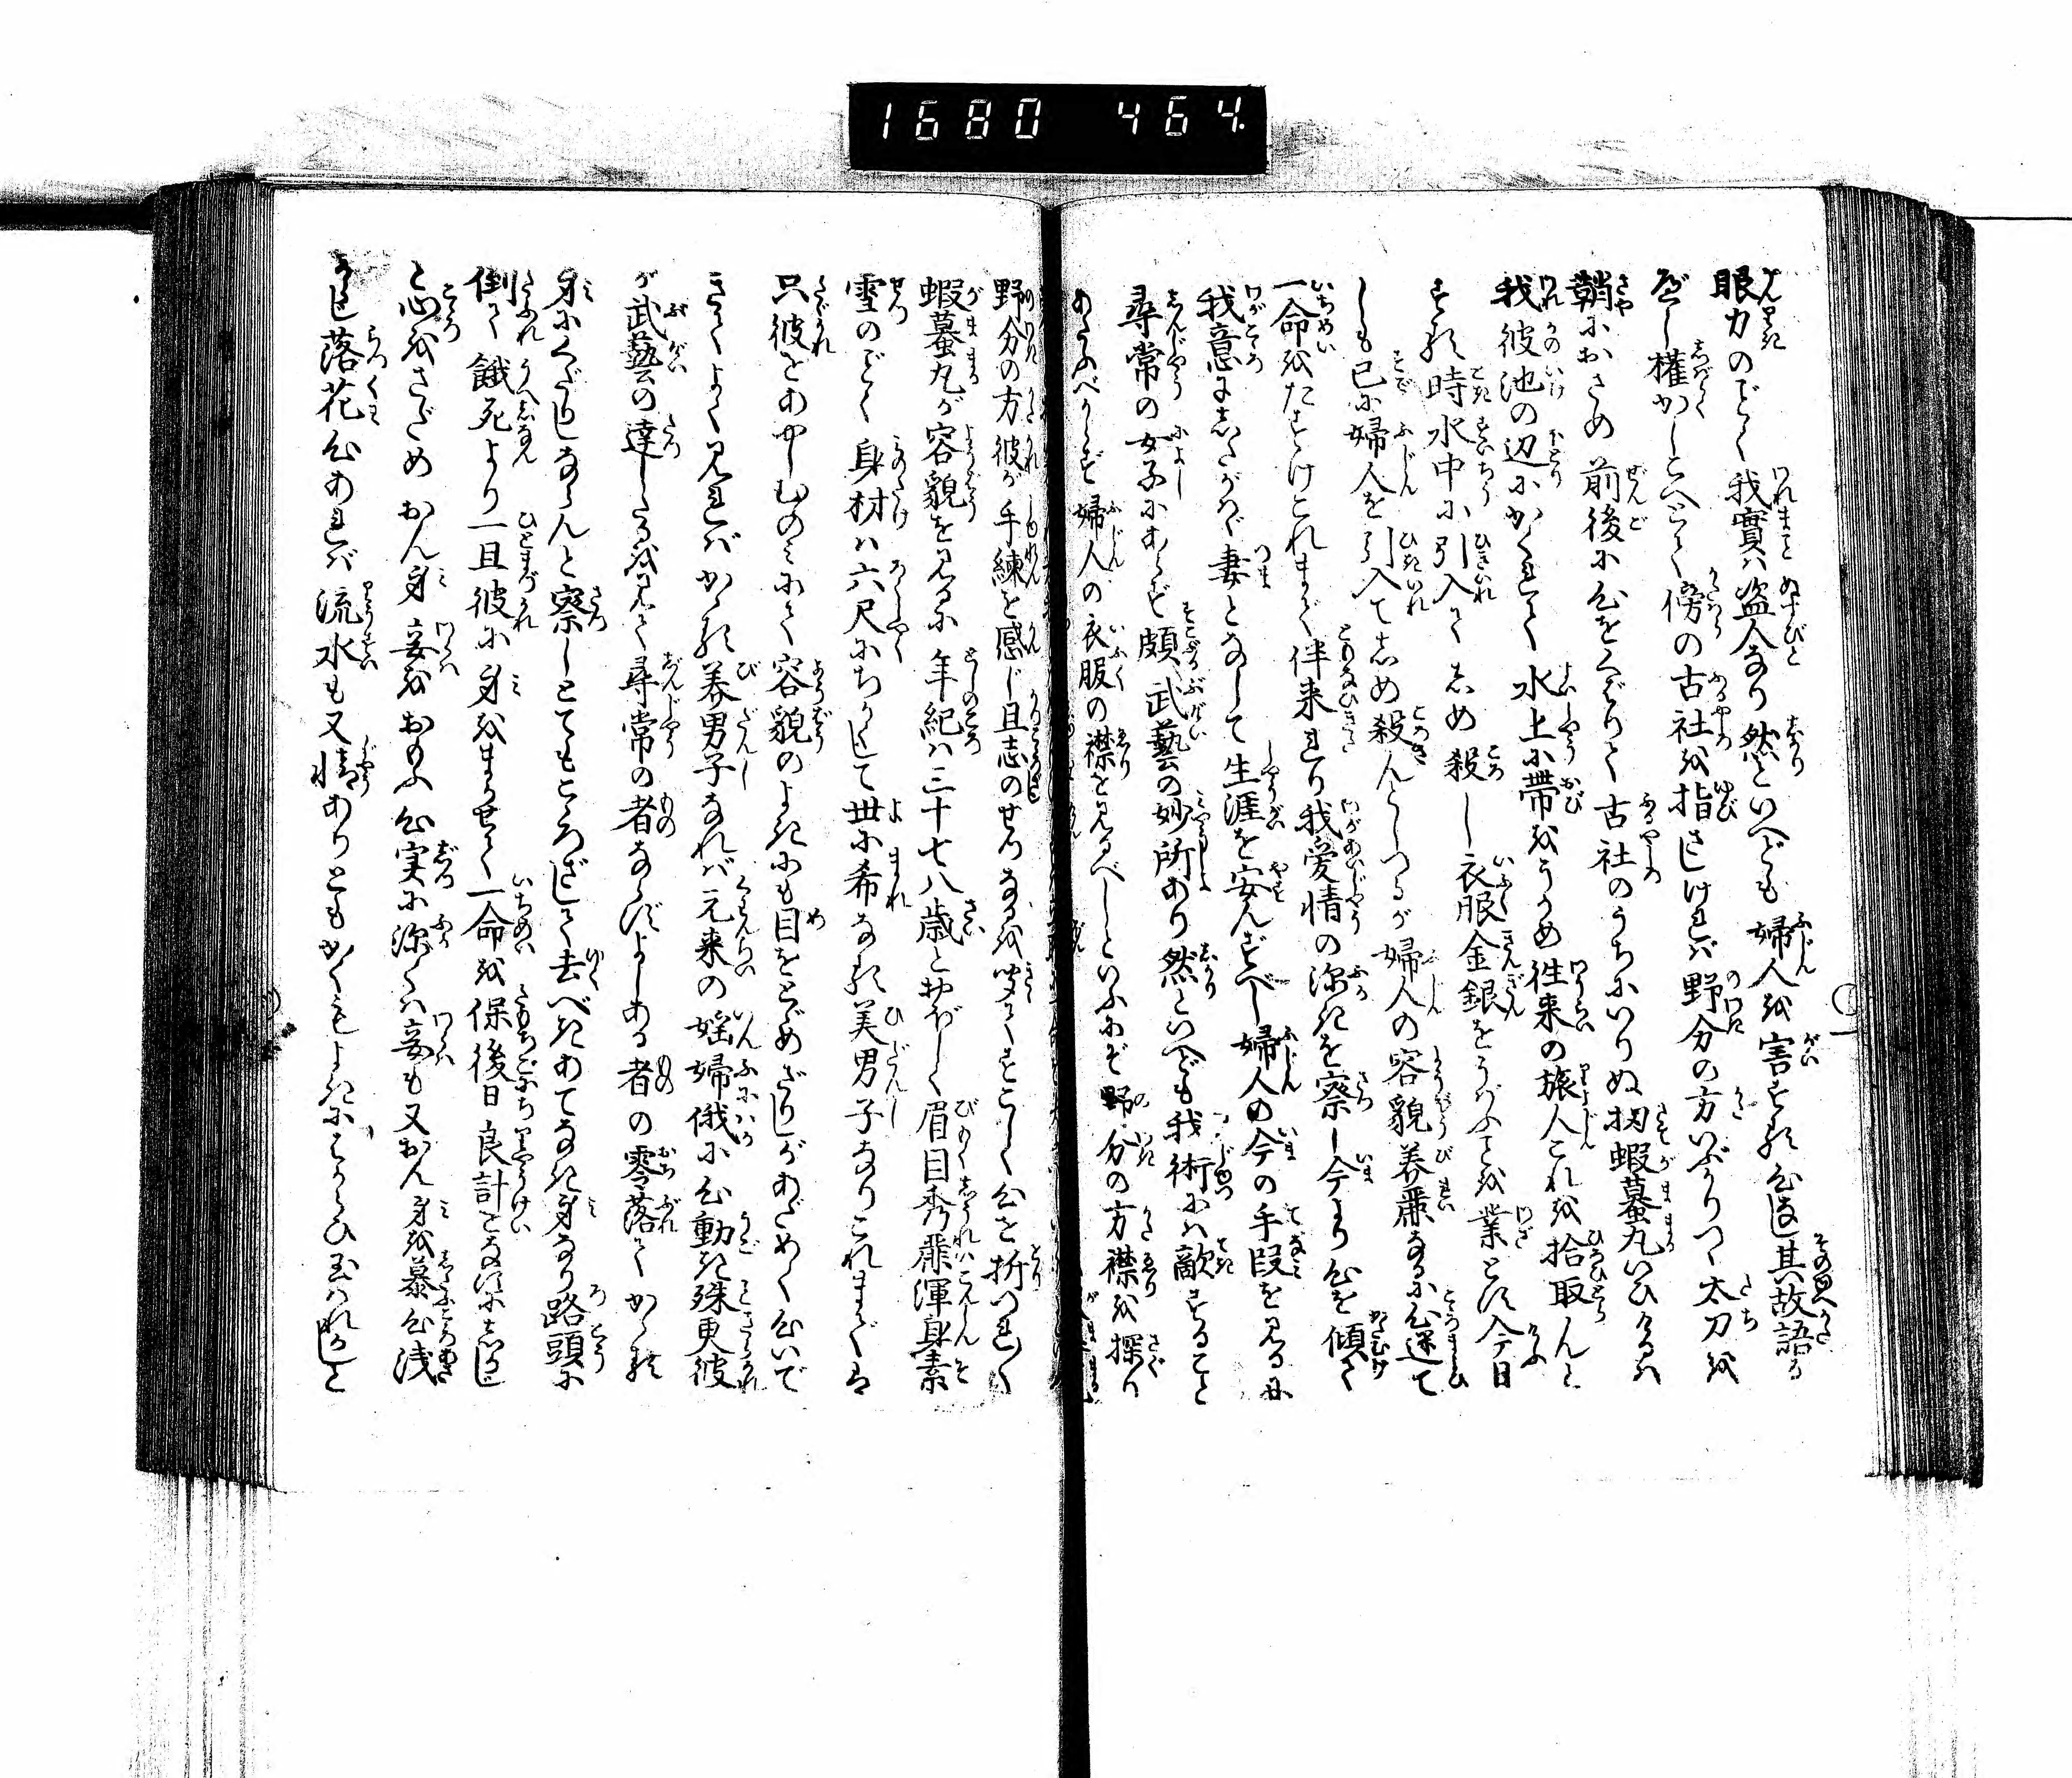 1680 464
眼力のごとく我實ハ盗人なり然といへども婦人を害する心なし其故語る
べし權かしこへとて傍の古社を指さしけれバ野分の方いぶかりつゝ太刀を
鞘におさめ前後に心をくばりて古社のうちにいりぬ扨蝦蟇丸いひけるハ
我彼池の辺にかくれて水上に帯をうかめ徃来の旅人これを拾取んと
する時水中に引入てしめ殺し衣服金銀をうばふを業とす今日
しも已に婦人を引入てしめ殺んとしつるが婦人の容貌美麗なるに心迷て
一命をたすけこれまで伴来れり我愛情の深きを察し今より心を傾て
我意にしたがひ妻となして生涯を安んずべし婦人の今の手段を見るに
尋常の女子にあらず頗武藝の妙所あり然といへども我術にハ敵すること
あたふべからず婦人の衣服の襟を見るべしといふにぞ野分の方襟を探り
野分の方彼が手練を感じ且志のせつなるを聞てすこしく心を折つれ〴〵
蝦蟇丸が容貌を見るに年紀ハ三十七八歳とおぼしく眉目秀麗渾身素
雪のごとく身材ハ六尺にちかくして世に希なる美男子なりこれまでハ
只彼をあやしむのミにて容貌のよきにも目をとゞめざりしがあだめく心いで
きてよく〳〵見れバかゝる美男子なれバ元来の婬婦俄に心動き殊更彼
が武藝の達したるを見て尋常の者ならずよしある者の零落てかゝる
身にくだりしならんと察しとてもところざして去べきあてなき身なり路頭に
倒て餓死より一旦彼に身をまかせて一命を保後日良計をなすにしかじ
と心をさだめおん身妾をおもふ心実に深くハ妾も又おん身を慕心浅
からじ落花心あれバ流水も又情ありともかくもよきにはからひ玉はれかしと